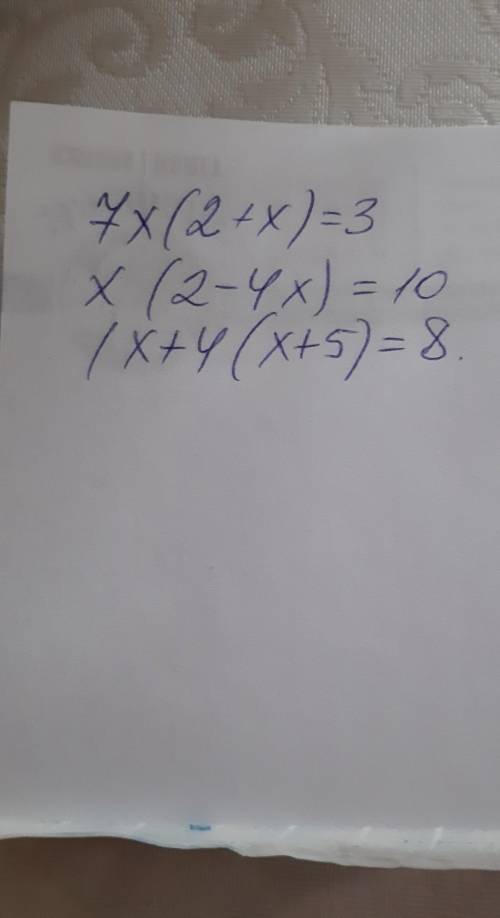 7x(2+x)=3
x (2-4x)=10
1x+4(x+5)=8.